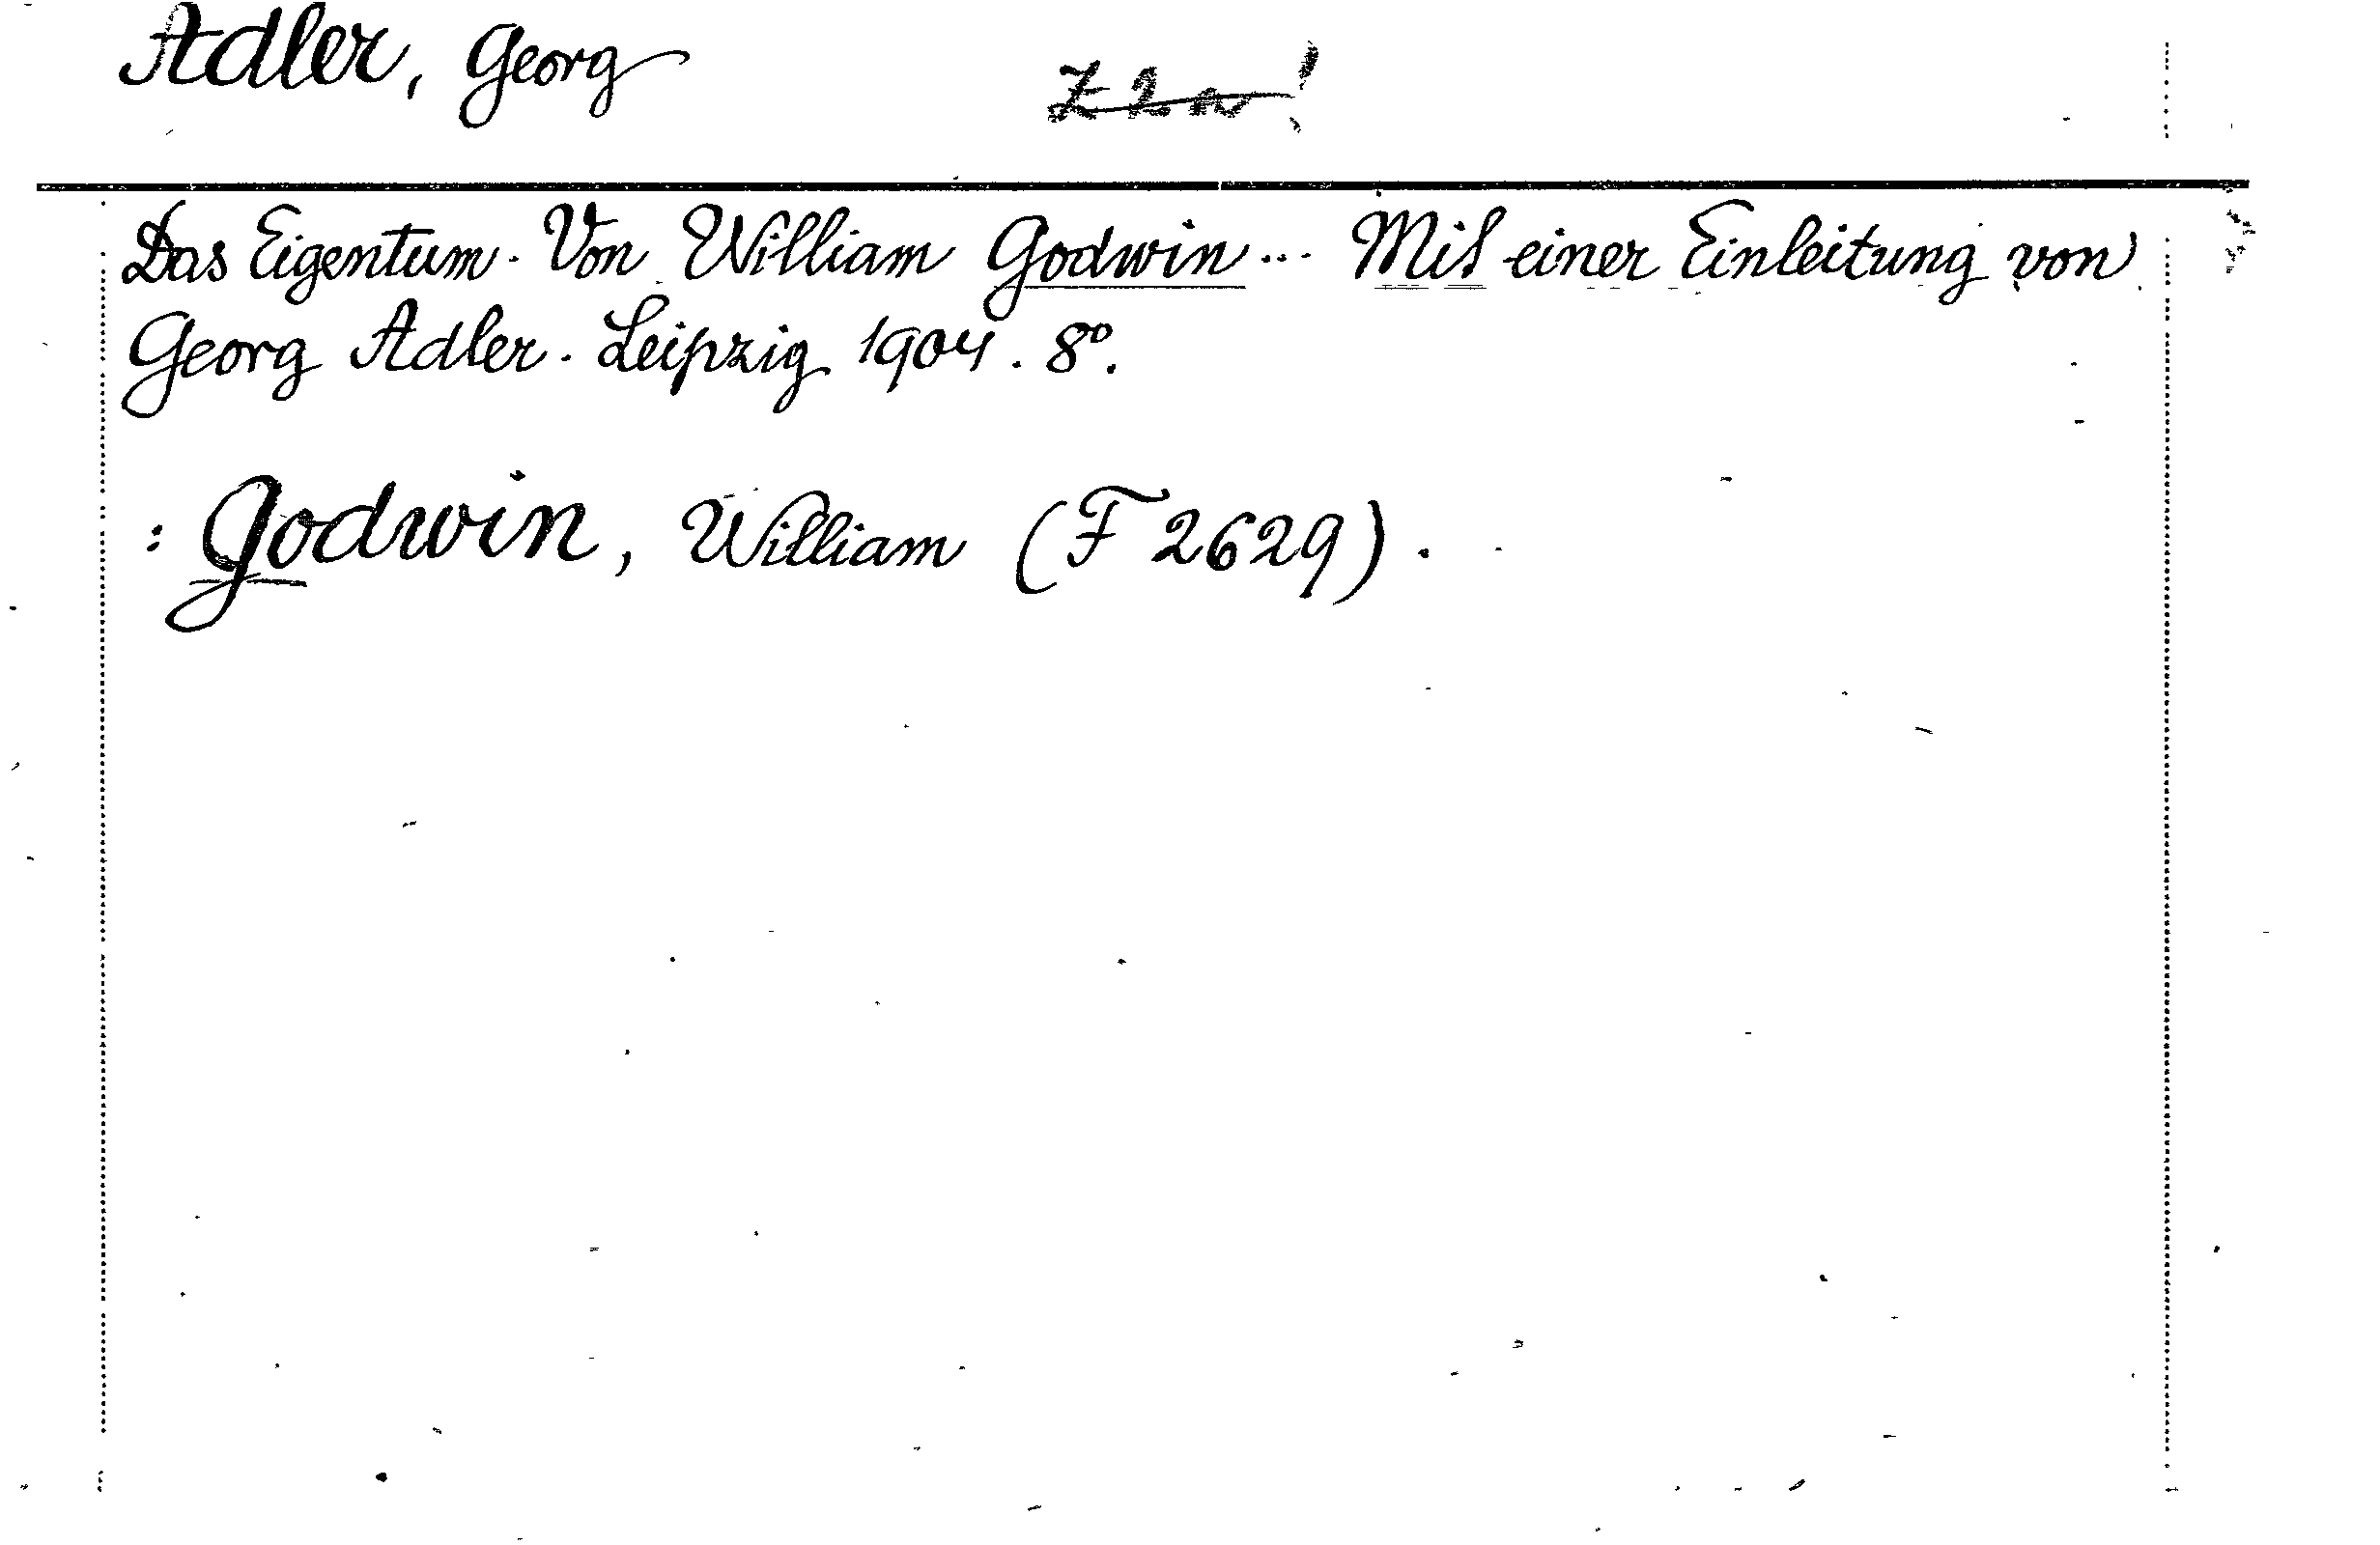 Adler, Georg
Das Eigentum. Von William Godwin... Mit einer Einleitung von
Georg Adler. Leipzig 1904. 8°.
: Godwin, William (F 2629).